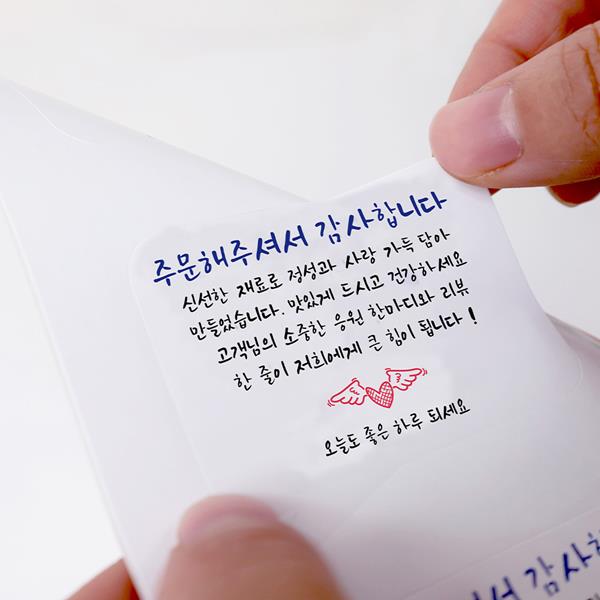 주문해주셔서 감사합니다
신선한 재료로 정성과 사랑 가득 담아
만들었습니다. 맛있게 드시고 건강하세요
고객님의 소중한 응원 한마디와 리뷰
한 줄이 저희에게 큰 힘이 됩니다!
오늘도 좋은 하루 되세요
셔서 감사합